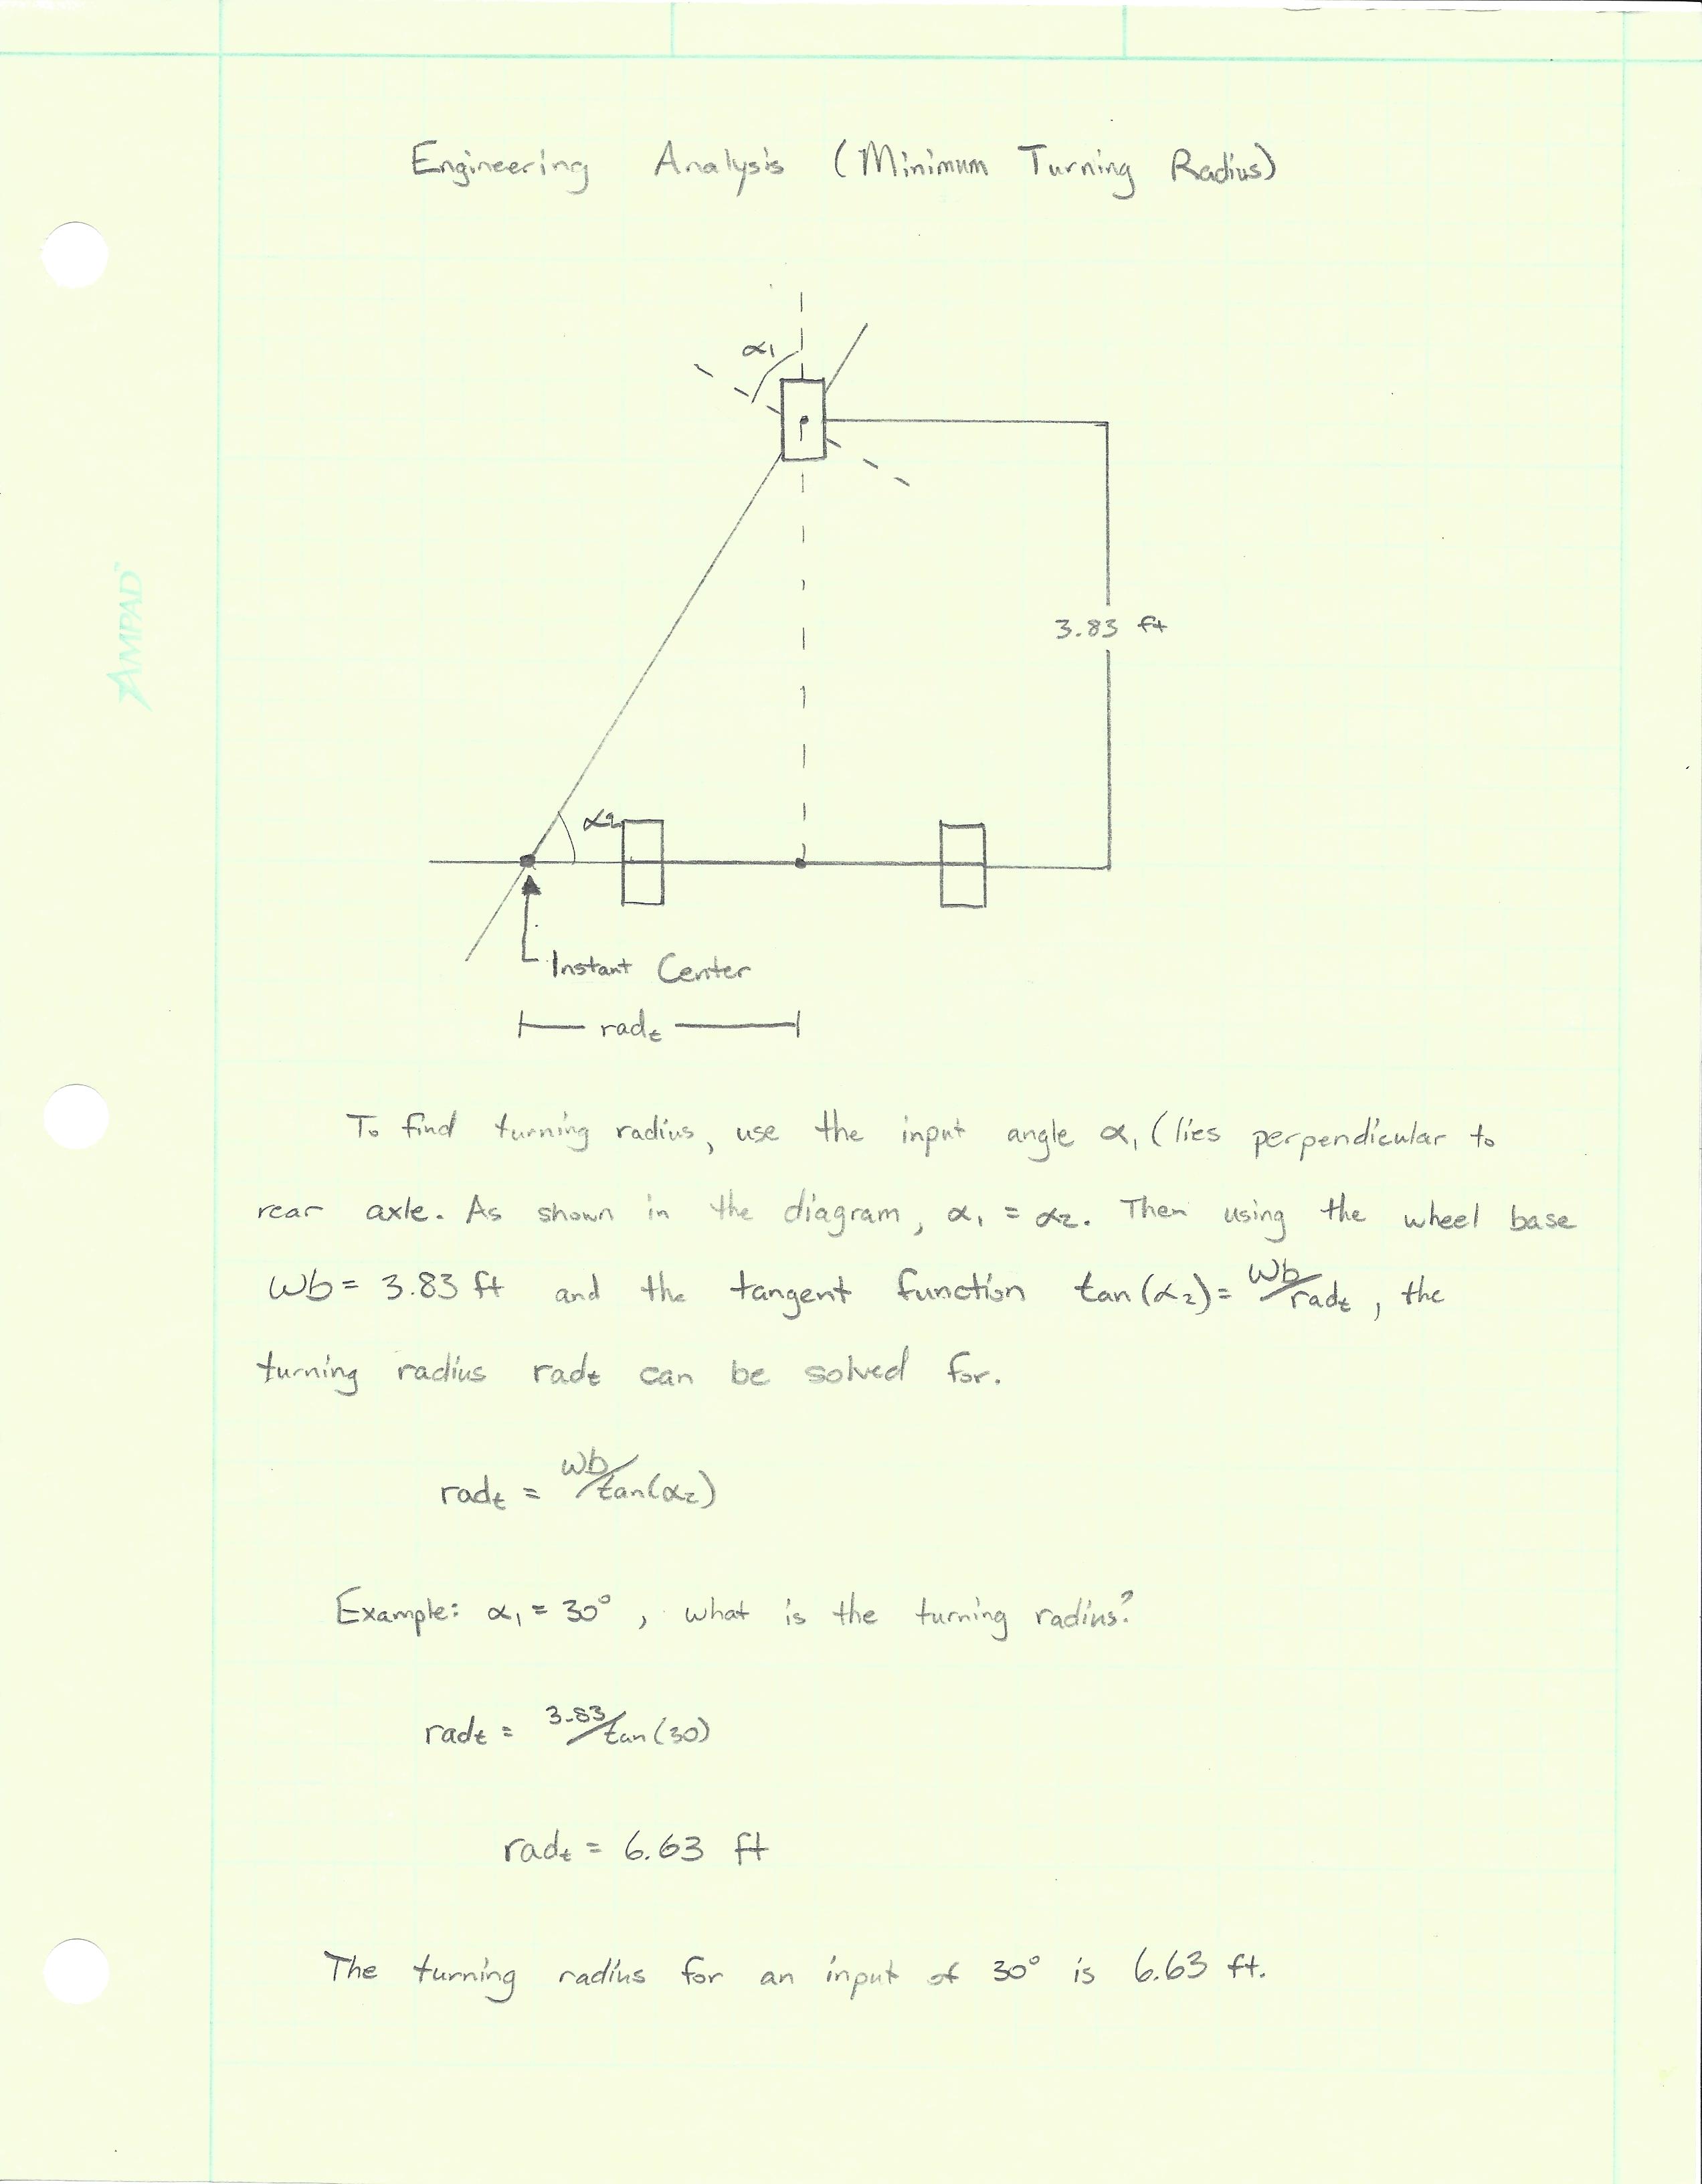 Engineering Analysis (Minimum Turning Radius)
α1
3.83 ft
α2
Instant Center
radt
AMPAD
To find turning radius, use the input angle α1 (lies perpendicular to
rear axle. As shown in the diagram, α1 = α2. Then using the wheel base
Wb = 3.83 ft and the tangent function tan(α2) = Wb/radt, the
turning radius radt can be solved for.
radt = Wb/tan(α2)
Example: α1 = 30°, what is the turning radius?
radt = 3.83/tan(30)
radt = 6.63 ft
The turning radius for an input of 30° is 6.63 ft.